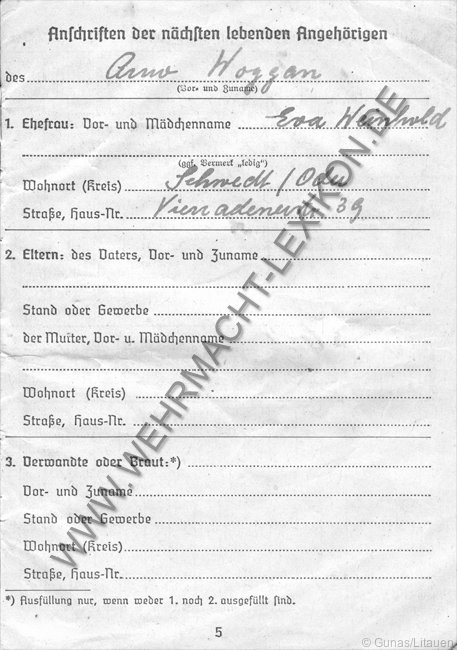 Anschriften der nächsten lebenden Angehörigen
des Arno Woggan
(Vor- und Zuname)
1. Ehefrau: Vor- und Mädchenname Eva Weinhold
(ggf. Vermerk „ledig")
Wohnort (Kreis) Schwedt / Oder
Straße, Haus-Nr. Vierradenerstr. 39
2. Eltern: des Vaters, Vor- und Zuname
Stand oder Gewerbe
der Mutter, Vor- u. Mädchenname
Wohnort (Kreis)
Straße, Haus-Nr.
3. Verwandte oder Braut:*)
Vor- und Zuname
Stand oder Gewerbe
Wohnort (Kreis)
Straße, Haus-Nr.
*) Ausfüllung nur, wenn weder 1. noch 2. ausgefüllt sind.
5
WWW.WEHRMACHT-LEXIKON.DE
© Gunas/Litauen